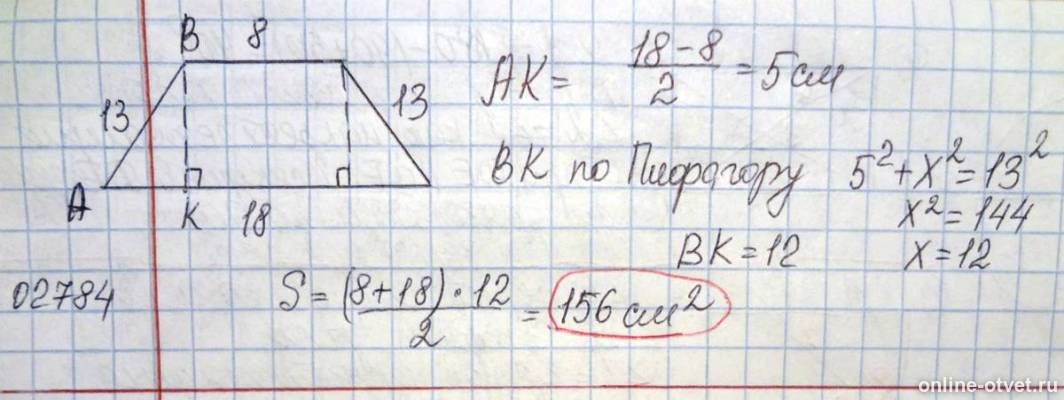 B 8
13 13
A K 18
AK = (18 - 8)/2 = 5 см
BK по Пифагору 5² + x² = 13²
x² = 144
BK = 12 x = 12
02784 S = (8 + 18) · 12/2 = 156 см²
online-otvet.ru